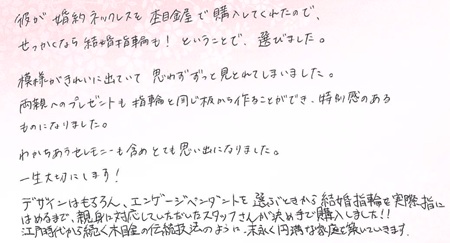 彼が婚約ネックレスを杢目金屋で購入してくれたので、
せっかくなら結婚指輪も！ということで、選びました。
模様がきれいに出ていて思わずずっと見とれてしまいました。
両親へのプレゼントも指輪と同じ板から作ることができ、特別感のある
ものになりました。
わかちあうセレモニーも含めとても思い出になりました。
一生大切にします！
デザインはもちろん、エンゲージペンダントを選ぶときから結婚指輪を実際指に
はめるまで、親身に対応していただいたスタッフさんが決め手で購入しました!!
江戸時代から続く木目金の伝統技法のように、末永く円満な家庭を築いていきます。